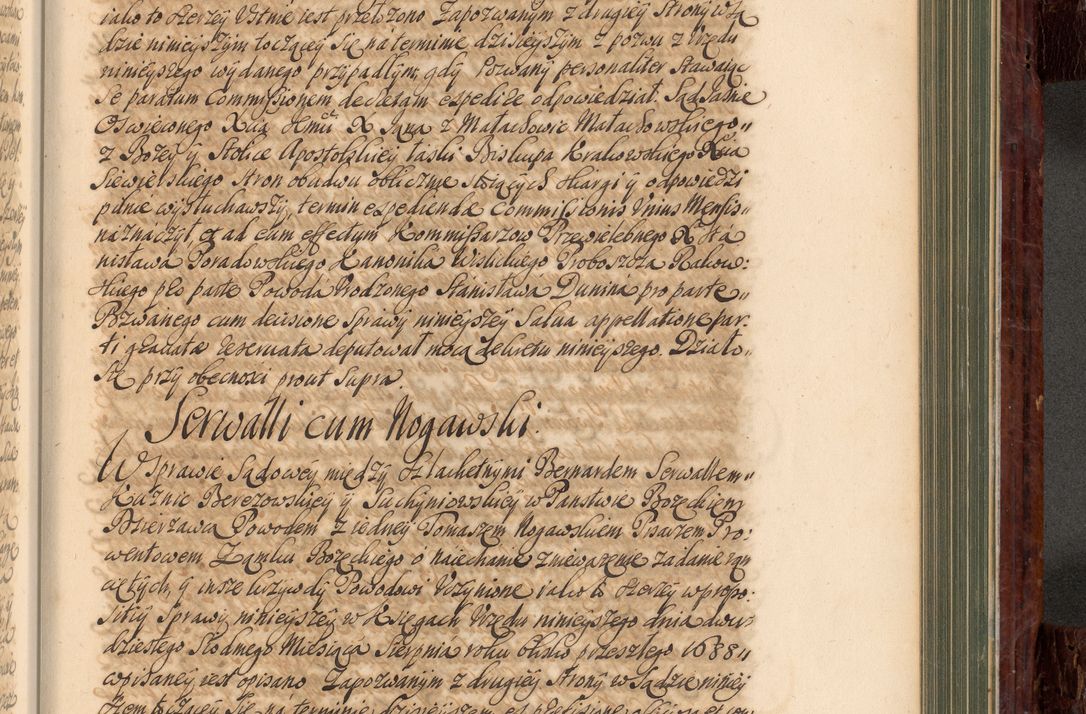 iako to szerzey Ustnie iest przełozono Zapozwanym z drugiey Strony w Są
dzie ninieyszym toczącey się na terminie dzisieyszym z pozwu z Urzędu
ninieyszego wydanego przypadłym, gdy Pozwany personaliter Stawaiąc
Se paratum Commissionem decretam expedire odpowiedział. Sąd Jaśnie
Oswieconego Xcia Jmci X Jana z Małachowic Małachowskiego
z Bozey y Stolice Apostolskiey łaski Biskupa Krakowskiego Xcia
Siewierskiego Stron obudwu oblicznie stoiących skargi y odpowiedzi
pilnie wysłuchawszy, termin expediendæ Commissionis Unius Mensis
naznaczył, et ad eum effectum Kommissarzow Przewielebnego X Sta
nisława Poradowskiego Kanonika Wislickiego Proboszcza Rakow:
skiego pro parte Powoda Urodzonego Stanisława Dunina pro parte
Pozwanego cum decisione Sprawy ninieyszey Salva appellatione par:
ti gravatæ reservata deputował mocą dekretu ninieyszego. Działo
Się przy obecnosci prout Supra.
Serwalli cum Nogawski.
W Sprawie Sądowey między Szlachetnymi Bernardem Serwallem
Kuznic Berezowskiey y Suchyniowskiey w Panstwie Bozęckiem
Dzierzawcą Powodem z iedney Tomaszem Nogawskiem Pisarzem Pro:
wentowem Zamku Bozęckiego o naiechanie zniewazenie zadanie ran
ciętych, y insze krzywdy Powodowi Uczynione iako to szerzey w propo:
sitiy Sprawy ninieyszey w Xięgach Urzędu ninieyszego dnia dwu
dziestego Siodmego Miesiąca Sierpnia roku blisko przeszłego 1688
wpisaney iest opisano Zapozwanym z drugiey Strony w Sądzie niniey
szem toczącey się na terminie dzisieyszem ex